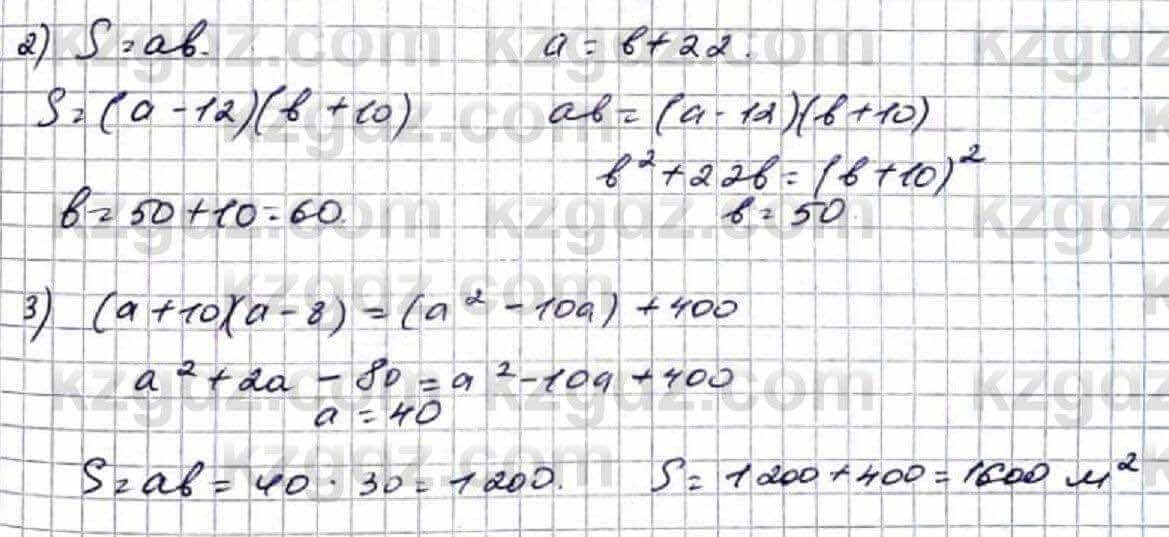 2) S = ab. a = b + 22.
S = (a - 12)(b + 10) ab = (a - 12)(b + 10)
b² + 22b = (b + 10)²
b = 50 + 10 = 60. b = 50.
3) (a + 10)(a - 8) = (a² - 10a) + 400
a² + 2a - 80 = a² - 10a + 400
a = 40
S = ab = 40 · 30 = 1200. S = 1200 + 400 = 1600 м²
kzgdz.com